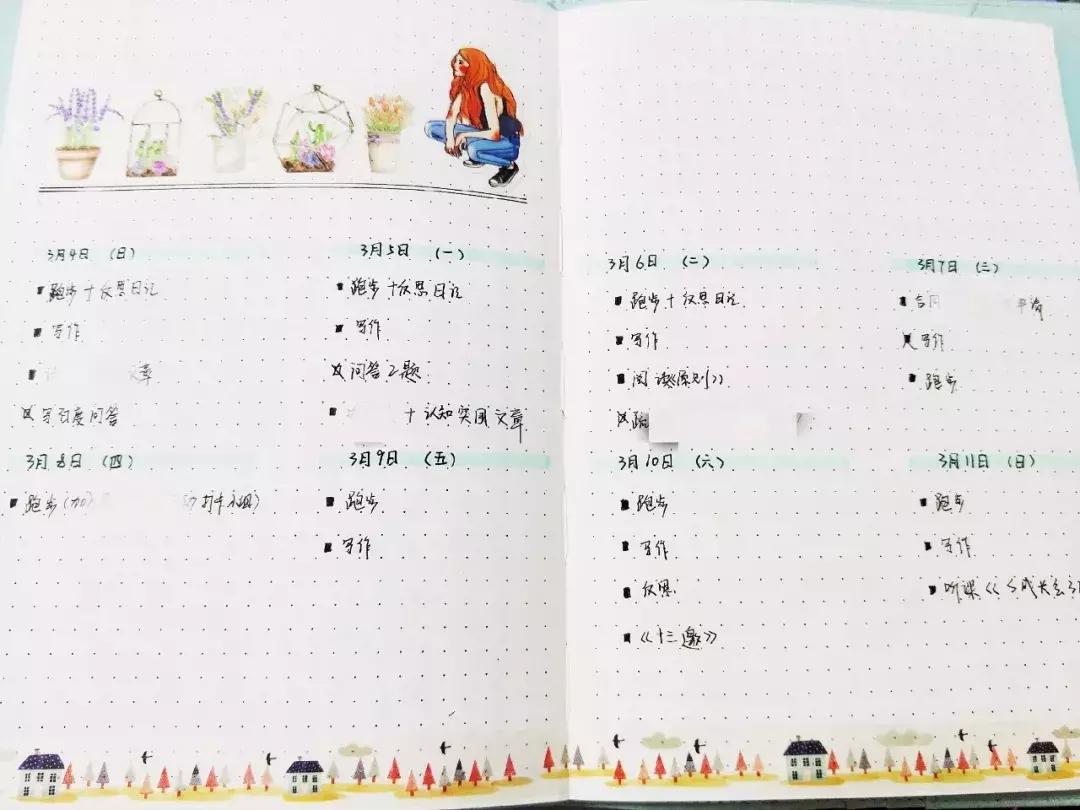 3月4日 (日)
跑步+反思日记
写作
文章
写百度问答
3月5日 (一)
跑步+反思日记
写作
问答2题
+认知突围文章
3月6日 (二)
跑步+反思日记
写作
阅读《原则》
3月7日 (三)
合同 申请
写作
跑步
3月8日 (四)
跑步(加
3月9日 (五)
跑步
写作
3月10日 (六)
跑步
写作
反思
《十三邀》
3月11日 (日)
跑步
写作
听课《